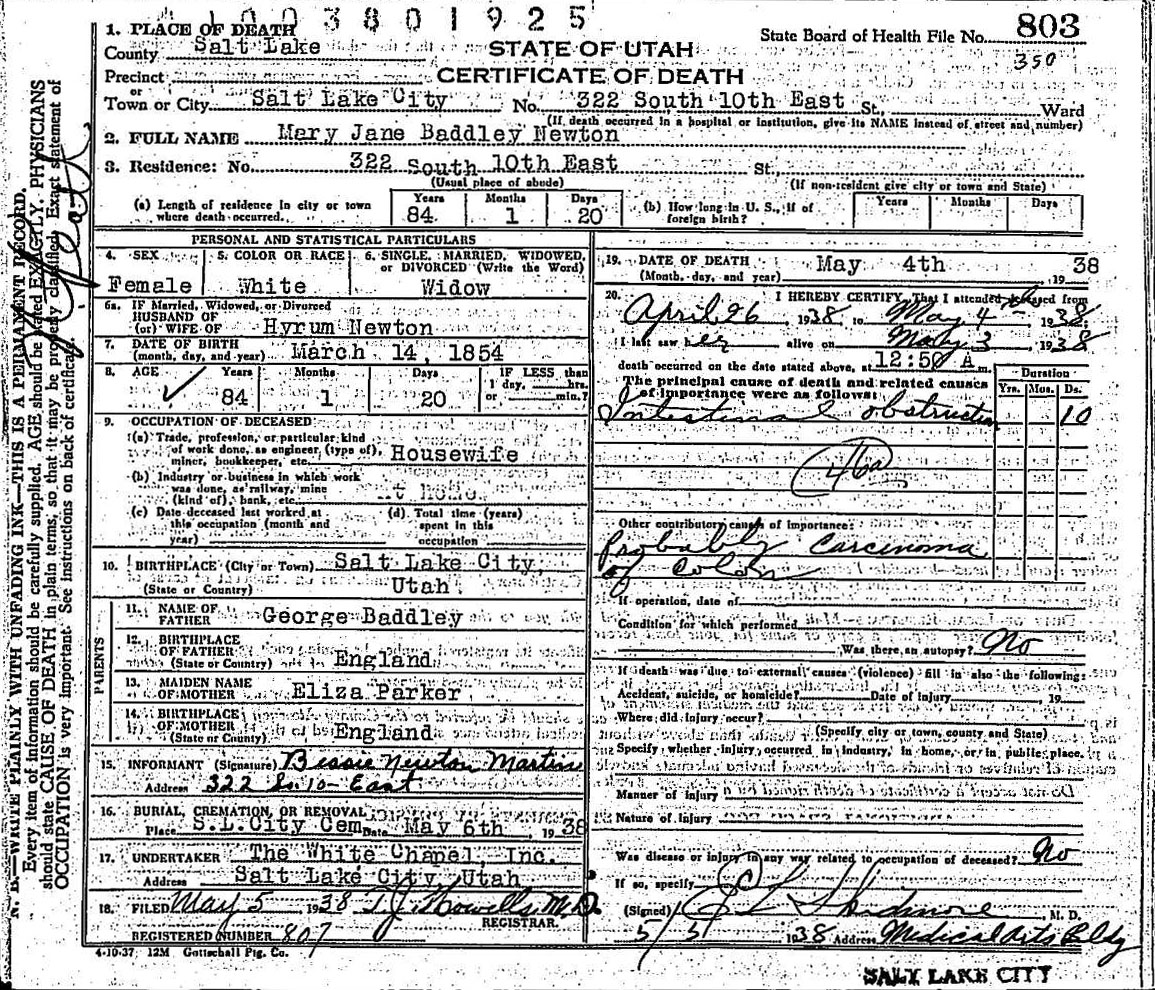 1003801925
State Board of Health File No. 803
350
1. PLACE OF DEATH
County Salt Lake
STATE OF UTAH
CERTIFICATE OF DEATH
Precinct
or
Town or City Salt Lake City No. 322 South 10th East St. Ward
(If death occurred in a hospital or institution, give its NAME instead of street and number)
2. FULL NAME Mary Jane Baddley Newton
3. Residence: No. 322 South 10th East St.
(Usual place of abode) (If non-resident give city or town and State)
(a) Length of residence in city or town where death occurred. Years 84 Months 1 Days 20
(b) How long in U. S., if of foreign birth? Years Months Days
PERSONAL AND STATISTICAL PARTICULARS
4. SEX 5. COLOR OR RACE 6. SINGLE, MARRIED, WIDOWED, or DIVORCED (Write the Word)
Female White Widow
6a. IF Married, Widowed, or Divorced
HUSBAND OF
(or) WIFE OF Hyrum Newton
7. DATE OF BIRTH
(month, day, and year) March 14, 1854
8. AGE Years Months Days IF LESS than
1 day, hrs.
84 1 20 or min.?
9. OCCUPATION OF DECEASED
(a) Trade, profession, or particular kind
of work done, as engineer, (type of),
miner, bookkeeper, etc. Housewife
(b) Industry or business in which work
was done, as railway, mine
(kind of), bank, etc. At Home
(c) Date deceased last worked at
this occupation (month and
year)
(d). Total time (years)
spent in this
occupation
10. BIRTHPLACE (City or Town) Salt Lake City,
(State or Country) Utah
PARENTS
11. NAME OF
FATHER George Baddley
12. BIRTHPLACE
OF FATHER
(State or Country) England
13. MAIDEN NAME
OF MOTHER Eliza Parker
14. BIRTHPLACE
OF MOTHER
(State or Country) England
15. INFORMANT (Signature) Bessie Newton Martin
Address 322 So. 10- East
16. BURIAL, CREMATION, OR REMOVAL
Place S.L.City Cem Date May 6th, 1938
17. UNDERTAKER The White Chapel, Inc.
Address Salt Lake City Utah
18. FILED May 5 1938 T.J. Howells M.D.
REGISTRAR.
REGISTERED NUMBER 807
4-10-37 12M Gottschall Ptg. Co.
19. DATE OF DEATH
(Month, day, and year) May 4th, 1938
20. I HEREBY CERTIFY, That I attended deceased from
April 26, 1938, to May 4, 1938
I last saw her alive on May 3, 1938
death occurred on the date stated above, at 12:50 A m.
The principal cause of death and related causes
of importance were as follows:
Duration
Yrs. Mos. Ds.
Intestinal obstruction 10
46a
Other contributory causes of importance:
Probably Carcinoma
of Colon
If operation, date of
Condition for which performed
Was there an autopsy? No
If death was due to external causes (violence) fill in also the following:
Accident, suicide, or homicide? Date of injury, 19
Where did injury occur?
(Specify city or town, county and State)
Specify whether injury occurred in industry, in home, or in public place.
Manner of injury
Nature of Injury
Was disease or injury in any way related to occupation of deceased? No
If so, specify
(Signed) Skidmore M. D.
5/5 1938 Address Medical Arts Bldg
SALT LAKE CITY
N. B.—WRITE PLAINLY WITH UNFADING INK—THIS IS A PERMANENT RECORD.
Every item of information should be carefully supplied. AGE should be stated EXACTLY. PHYSICIANS
should state CAUSE OF DEATH in plain terms, so that it may be properly classified. Exact statement of
OCCUPATION is very important. See instructions on back of certificate.